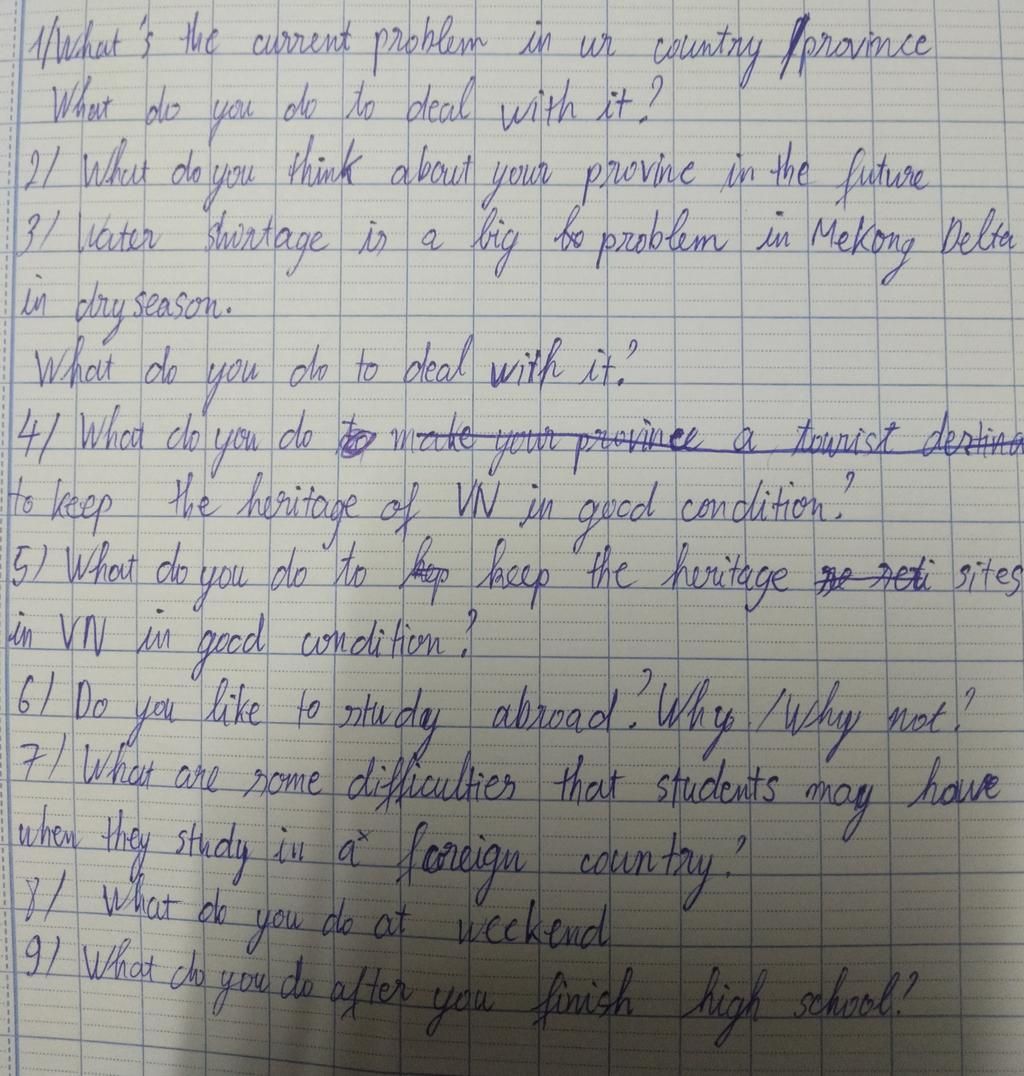 1/What's the current problem in ur country /province
What do you do to deal with it?
2/ What do you think about your provine in the future
3/ Water shortage is a big problem in Mekong Delta
in dry season.
What do you do to deal with it?
4/ What do you do to make your province a tourist destina
to keep the heritage of VN in good condition?
5) What do you do to keep the heritage sites
in VN in good condition?
6/ Do you like to study abroad? Why /Why not?
7/ What are some difficulties that students may have
when they study in a foreign country?
8/ What do you do at weekend
9/ What do you do after you finish high school?